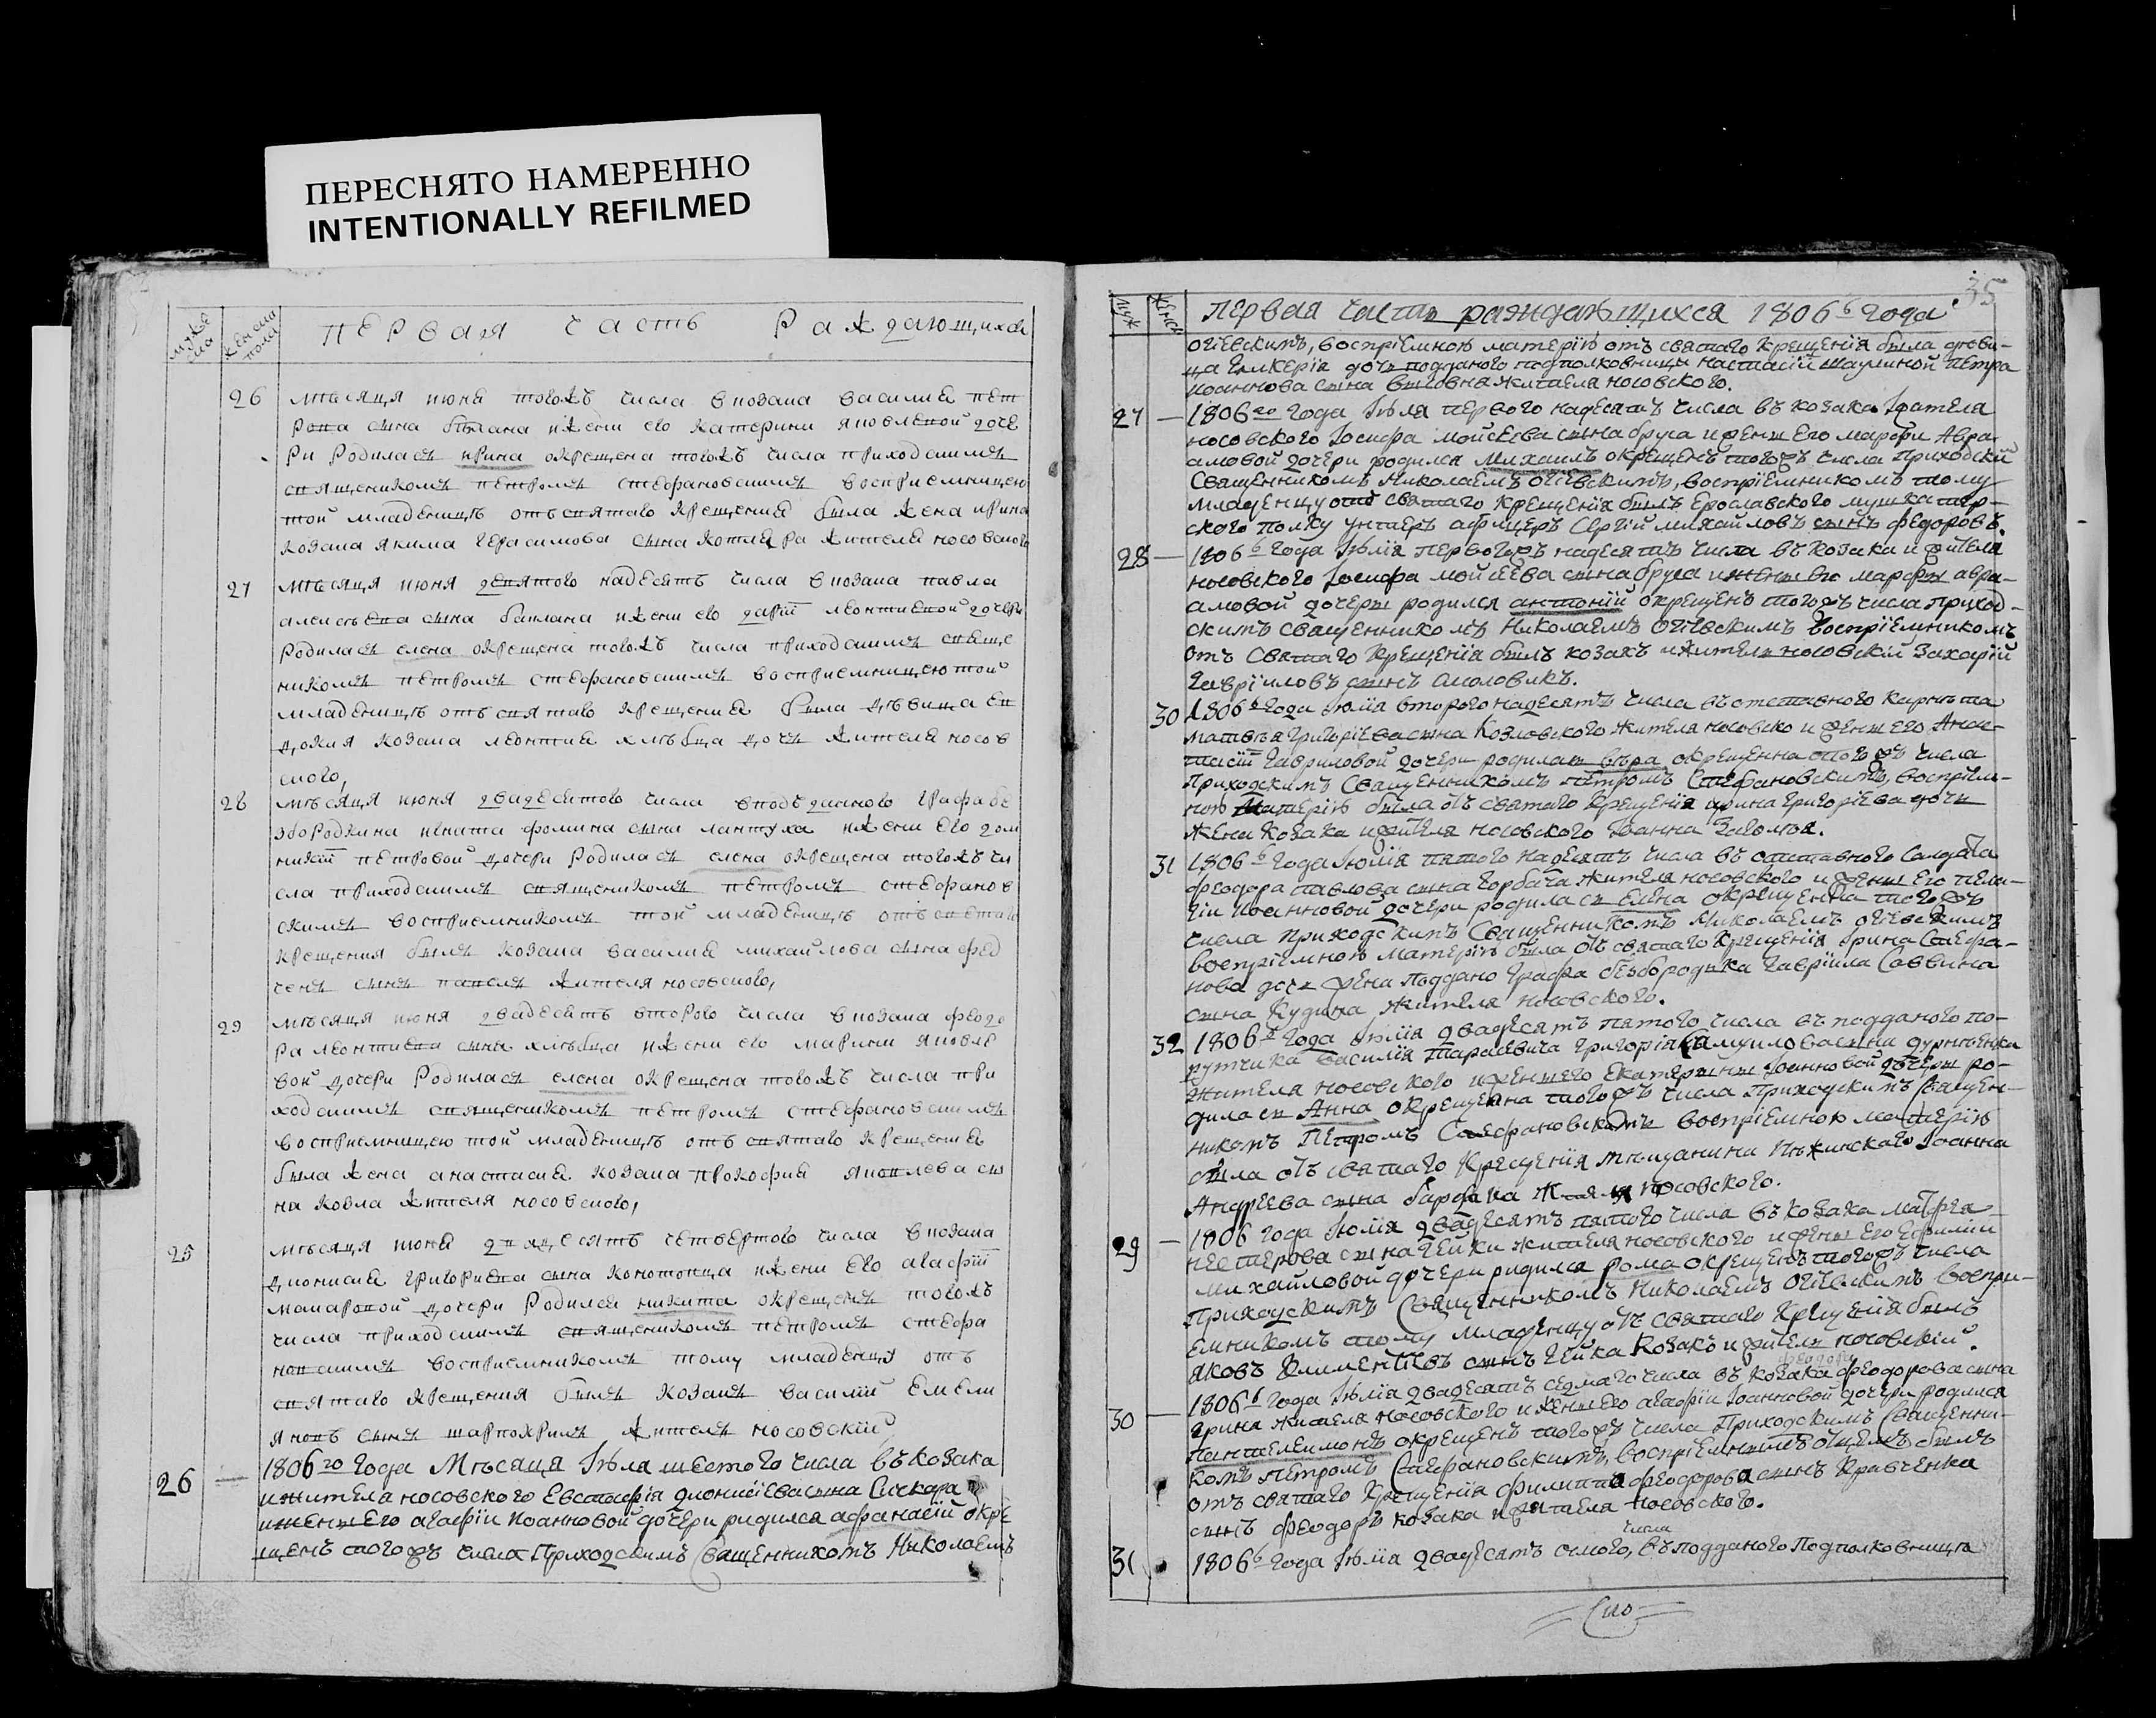 ПЕРЕСНЯТО НАМЕРЕННО
INTENTIONALLY REFILMED
мужеска
женска пола
первая часть раждающихся
26 мѣсяця июня тогожъ числа в козака василия пет
рова сина баклана и жени его катерини яковлевой доче
ри родилася ирина окрещена тогожъ числа приходскимъ
священикомъ петромъ стефановскимъ восприемницею
той младеницѣ отъ святаго крещения была жена ирина
козака якима герасимова сына котляра жителя носовского
27 мѣсяця июня девятого надесять числа в козака павла
алексѣева сына баклана и жени его дарїи леонтиевой дочери
родилася елена окрещена тогожъ числа приходскимъ свяще
никомъ петромъ стефановскимъ восприемницею той
младеницѣ отъ святаго крещения была дѣвица ев
докия козака леонтия хмѣлца дочь жителя носов
ского,
28 мѣсяця июня двадесятого числа в подъданного графа бе
збородкина никита фомина сына лантуха и жени его дом
никїи петровой дочери родилась елена окрещена тогожъ чи
сла приходскимъ священикомъ петромъ стефанов
скимъ восприемникомъ той младеницѣ отъ святаго
крещения былъ козака василия михайлова сына фед
ченя сынъ павелъ жителя носовского,
29 мѣсяця июня двадесять второго числа в козака феодо
ра леонтиева сына хмѣлца и жени его марини яковле
вой дочери родилась елена окрещена тогожъ числа при
ходскимъ священикомъ петромъ стефановскимъ
восприемницею той младеницѣ отъ святаго крещения
была жена анастасия козака прокофия яковлева сы
на ковла жителя носовского,
25 мѣсяця июня двадесять четвертого числа в козака
дионисия григориева сына конотопца и жени его агафїи
макаровой дочери родился никита окрещенъ тогожъ
числа приходскимъ священикомъ петромъ стефа
новскимъ восприемникомъ тому младенцу отъ
святаго крещения былъ козакъ василий емели
яновъ сынъ шарпокрилъ житель носовский
26 — 1806го года Мѣсяца Iюля шестого числа въ козака
и жителя носовского Евстафiя дионисiева сына Сичкара
и жены Его агафiи иоанновой дочери родился афанасiй окре
щенъ тогожъ числа Приходскимъ Священникомъ Николаемъ
35
муж
женск
первая часть раждающихся 1806б года
огiевскимъ, воспрiемною материю отъ святаго крещенiя была дѣви-
ца гликерiя дочь подданого подполковници настасiи шаулиной петра
иоаннова сына жителя носовского.
27 — 1806го года Iюля первого надесять числа въ козака жителя
носовского Iосифа мойсеева сына бруса и жены Его марфы Авра-
амовой дочери родился михаилъ окрещенъ тогожъ числа Приходскiй
Священникомъ Николаемъ огiевскимъ, воспрiемникомъ тому
младенцу отъ святаго крещенiя былъ Ерославского мушкатер-
ского полку унтеръ афицеръ Сергiй михайловъ сынъ федоровъ.
28 — 1806б года Iюлiя первогожъ надесять числа въ козака и жителя
носовского Iосифа мойсеева сына бруса и жены Его марфы авра-
амовой дочеры родился антонiй окрещенъ тогожъ числа приход-
скимъ священникомъ Николаемъ огiевскимъ воспрiемникомъ
отъ святаго крещенiя былъ козакъ и житель носовскiй Захарiй
гаврiиловъ сынъ
30 1806б года Iюлiя второго надесять числа въ отставного
матвѣя григорiева сына Козловского жителя носовско и жены его Анас-
тасiи гавриловой дочери родилась вѣра окрещенна тогожъ числа
Приходскимъ Священникомъ петромъ Стефановскимъ, воспрiем-
ною Материю была отъ святаго крещенiя ирина григорiева дочь
жени козака и жителя носовского Iоанна
31 1806б года Iюлiя пятого надесять числа въ отставного Салдата
феодора павлова сына горбача жителя носовского и жены Его пела-
гiи иоанновой дочери родилась елена окрещенна тогожъ
числа приходскимъ Священникомъ Николаемъ огiевскимъ
воспрiемною материю была отъ святаго крещенiя Ирина Стефа-
нова дочь жена поддано графа безбородька гаврiила Саввина
сына Кудина жителя носовского.
32 1806б года Iюлiя двадесять пятого числа въ подданого по-
рутчика василiя тарасевича григорiя Самуилова сына дурнѣвка
жителя носовского и жены его Екатерыны Iоанновой дочеры ро-
дилась Анна окрещенна тогожъ числа Приходскимъ Священ-
никомъ Петромъ Стефановскимъ воспрiемною материю
была отъ святаго крещенiя мѣщанина нѣжинскаго Iоанна
Андреева сына жителя носовского.
29 — 1806 года Iюлiя двадесять пятого числа въ козака
нестерова сына гейки жителя носовского и жены Его Ефимiи
михайловой дочери родился рома окрещенъ тогожъ числа
Приходскимъ Священникомъ Николаемъ огiевскимъ воспри-
емникомъ тому младенцу отъ святаго крещенiя былъ
яковъ климентiевъ сынъ гейка козакъ и житель носовскiй.
феодора
30 — 1806б года Iюлiя двадесять седмаго числа въ козака феодорова сына
грина жителя носовского и жены его агафiи Iоанновой дочери родился
пантелеимонъ окрещенъ тогожъ числа Приходскимъ Священни-
комъ петромъ Стефановскимъ, воспрiемнымъ отцемъ былъ
отъ святаго крещенiя филиппа феодорова сынъ кравченка
сынъ феодоръ козака и жителя носовского.
числа
31 1806б года Iюлiя двадесять осмого, въ подданого Подполковницѣ